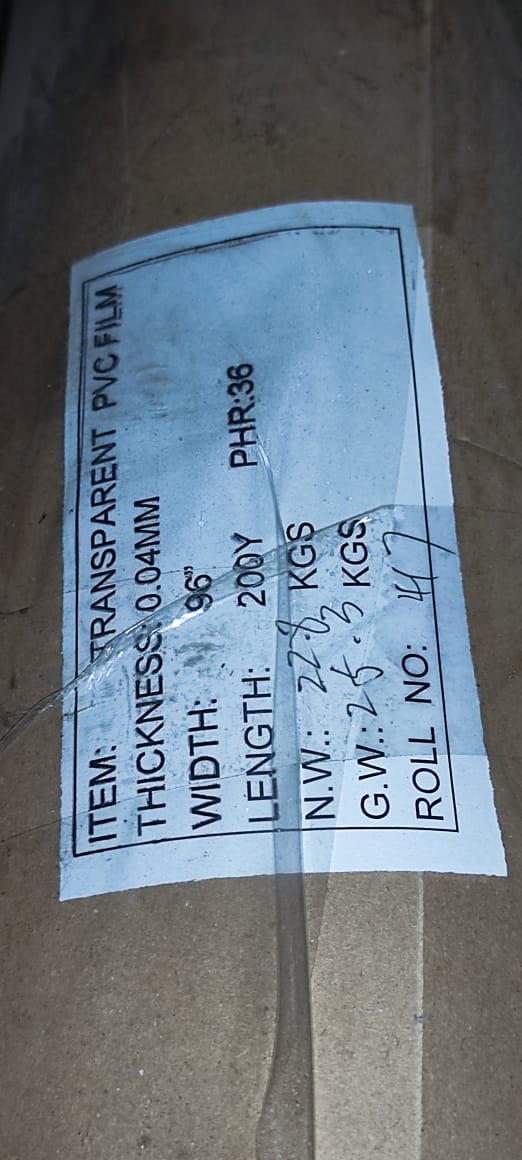 ITEM: TRANSPARENT PVC FILM
THICKNESS: 0.04MM
WIDTH: 96"
LENGTH: 200Y PHR:36
N.W.: KGS
G.W.: 25.3 KGS
ROLL NO: 417